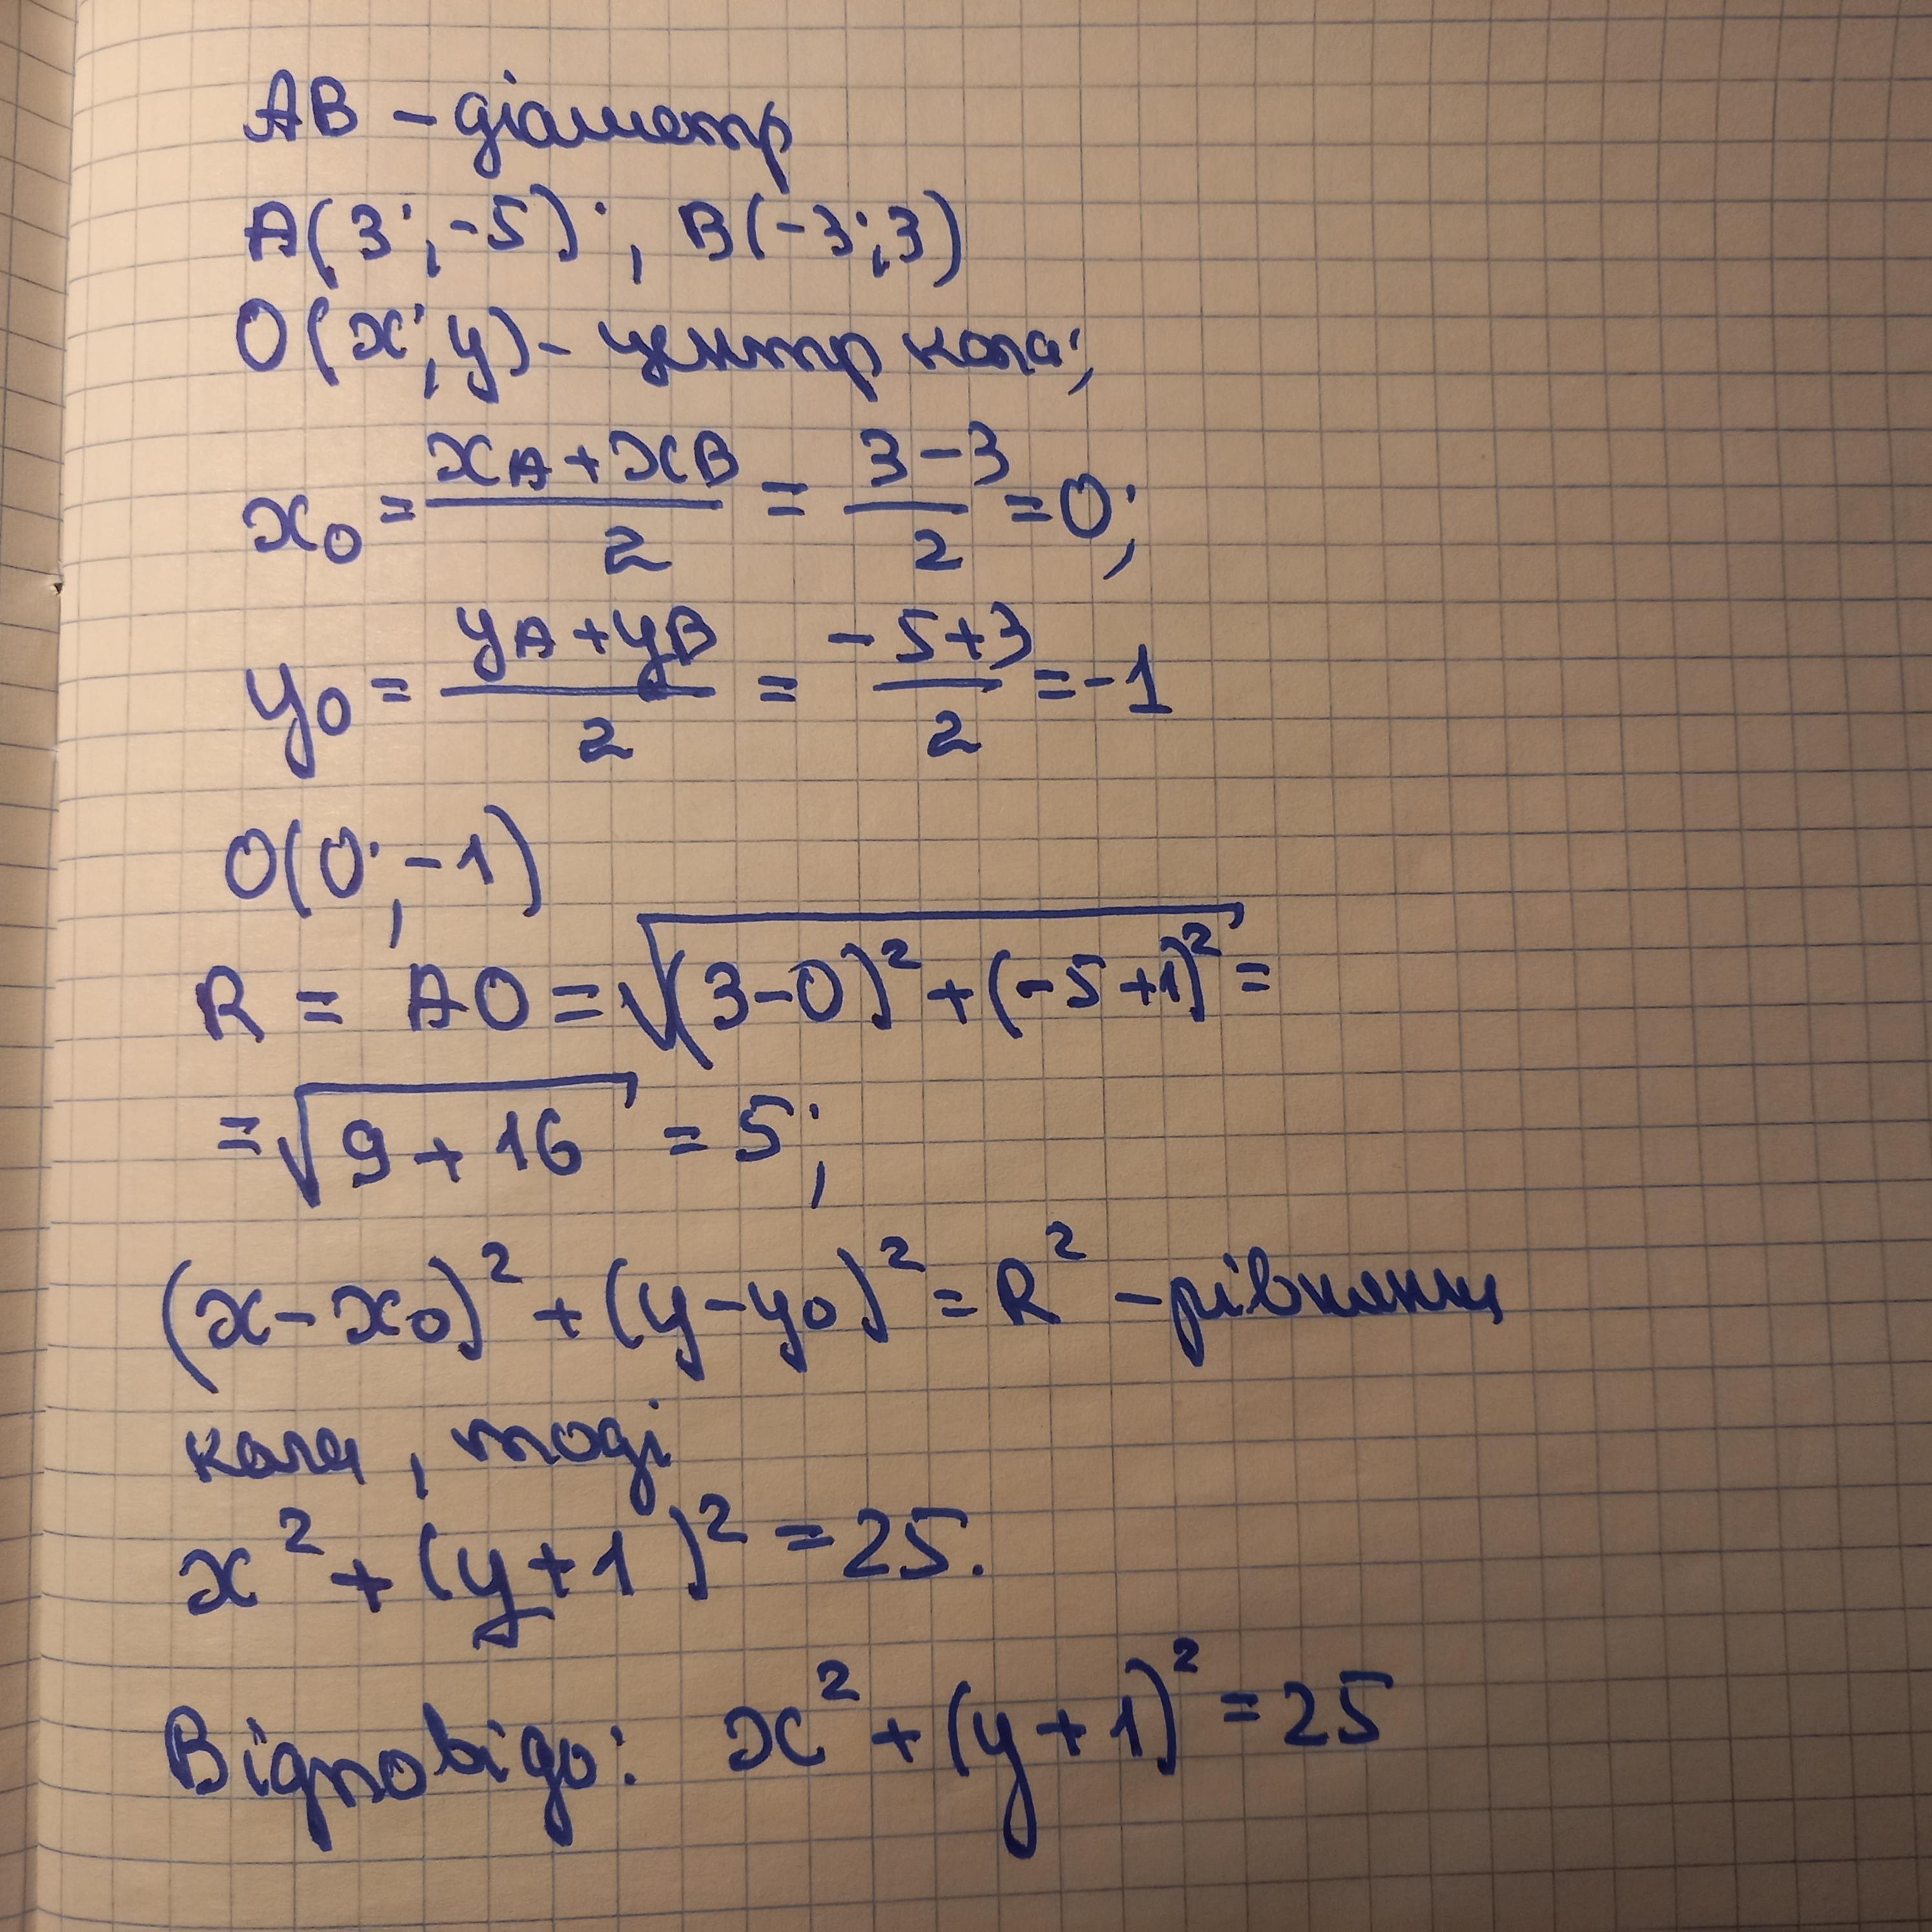 AB - діаметр
A(3;-5); B(-3;3)
O(x;y) - центр кола;
x₀ = (xA + xB)/2 = (3-3)/2 = 0;
y₀ = (yA + yB)/2 = (-5+3)/2 = -1
O(0;-1)
R = AO = √((3-0)² + (-5+1)²) =
= √(9+16) = 5;
(x-x₀)² + (y-y₀)² = R² - рівняння
кола, тоді
x² + (y+1)² = 25.
Відповідь: x² + (y+1)² = 25